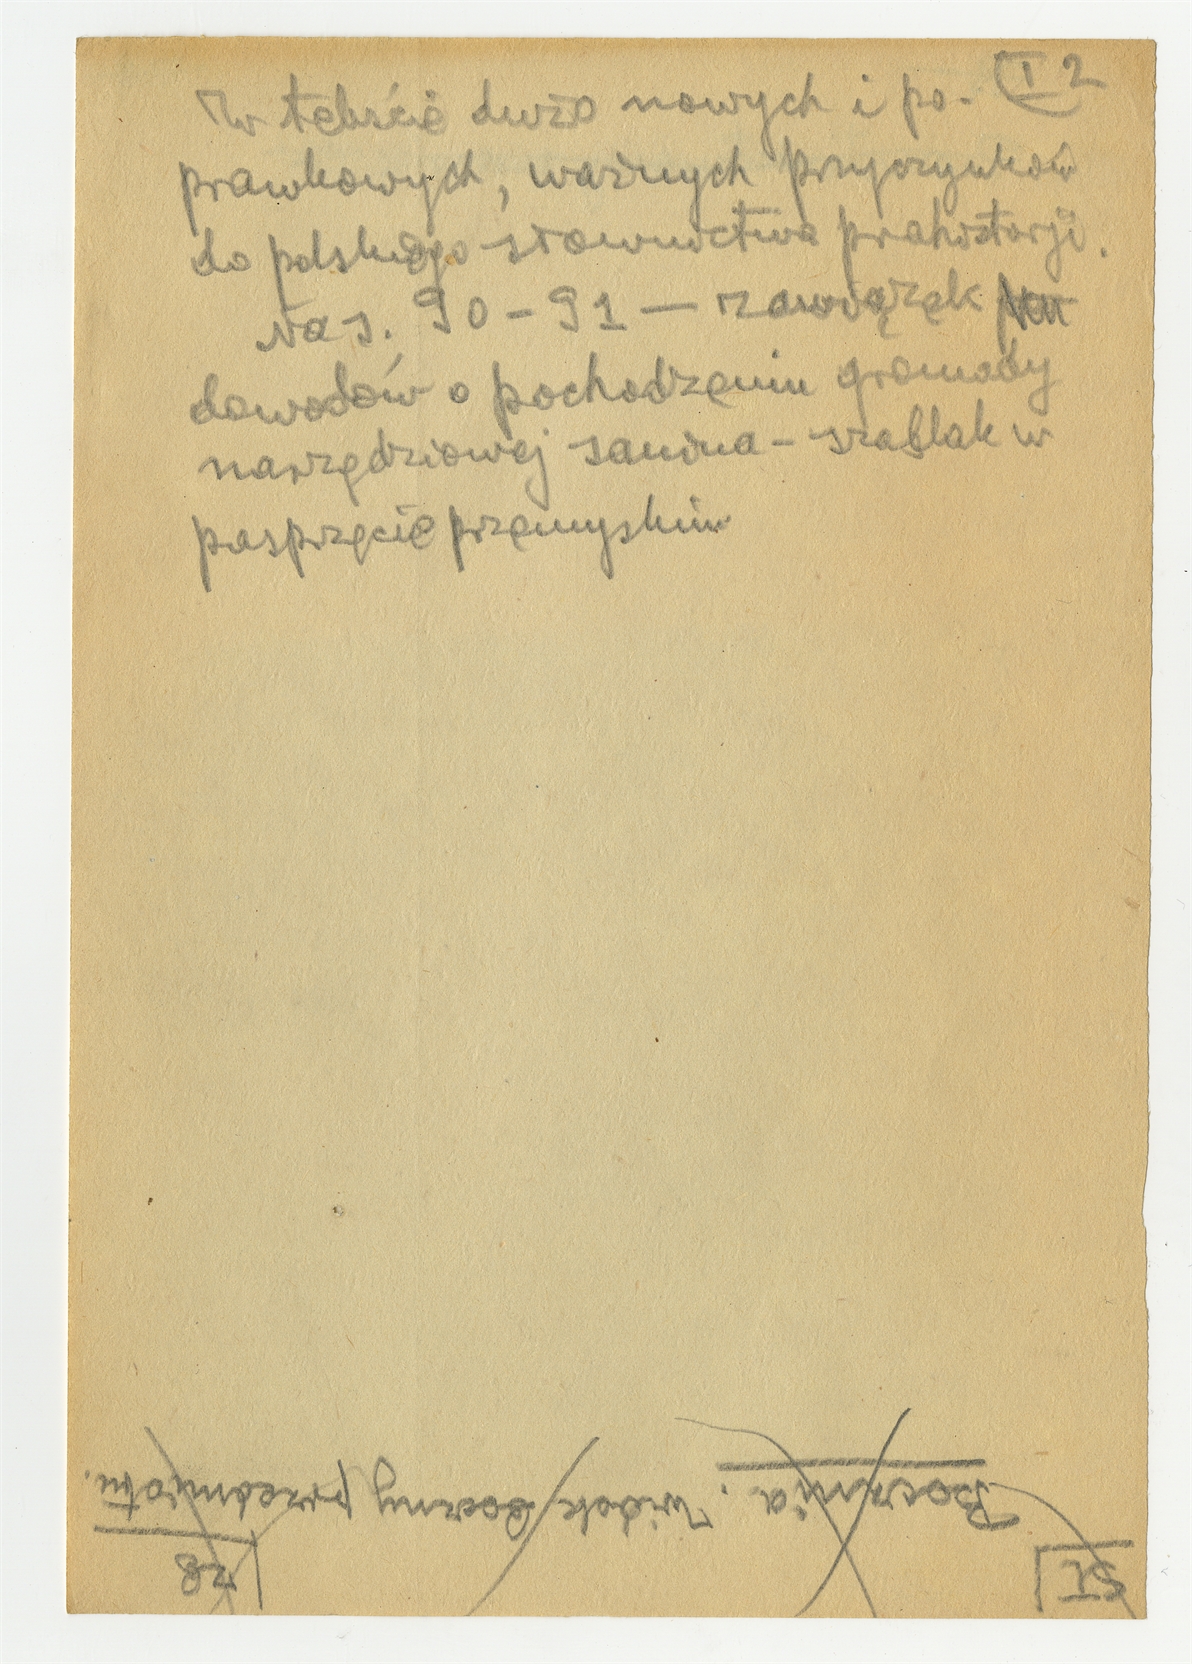 I 2
W tekście dużo nowych i po-
prawkowych, ważnych przyczynków
do polskiego słownictwa prahistorji.
Na s. 90-91 — zawiązek
dowodów o pochodzeniu gromady
narzędziowej sanina - szablak w
pasprzęcie przemyskim
St
28
Bocznia. Widok boczny przedmiotu.